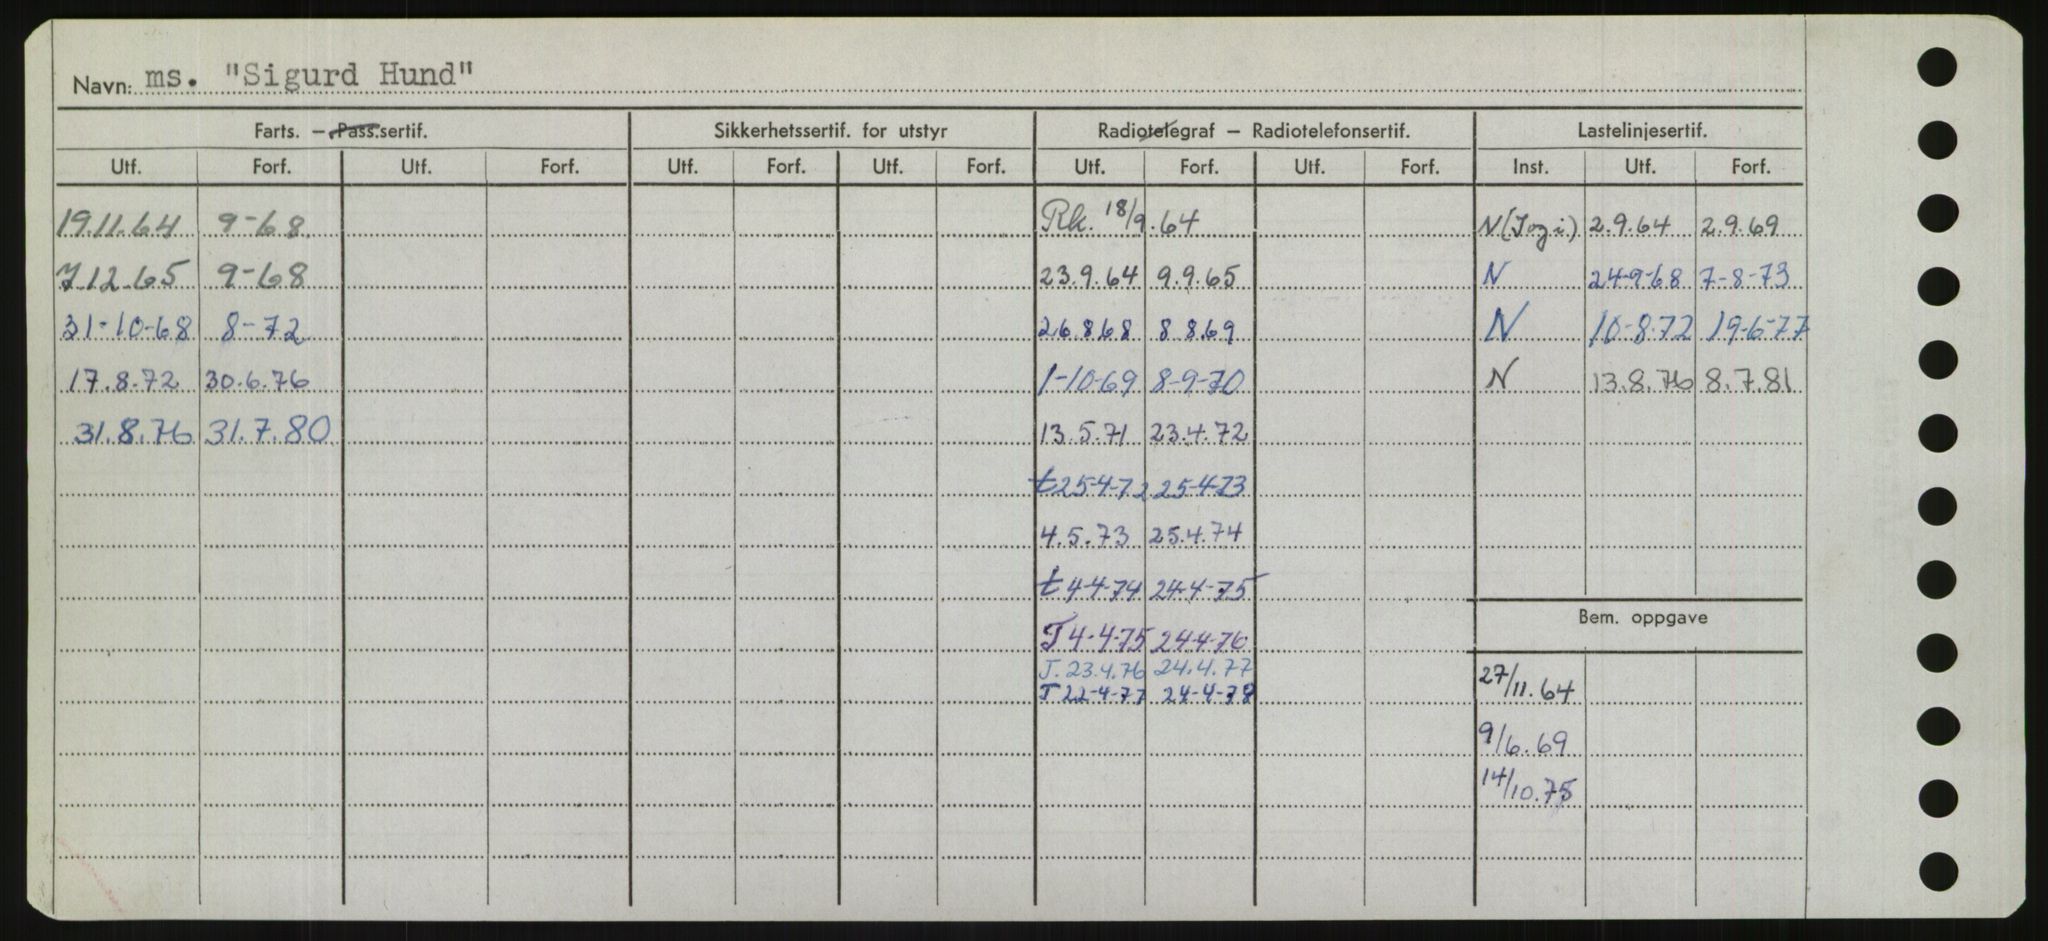 Navn: ms. "Sigurd Hund"
Farts. – Pass.sertif. Sikkerhetssertif. for utstyr Radiotelegraf – Radiotelefonsertif. Lastelinjesertif.
Utf. Forf. Utf. Forf. Utf. Forf. Utf. Forf. Utf. Forf. Utf. Forf. Inst. Utf. Forf.
19.11.64 9-68 Rk. 18/9.64 N 2.9.64 2.9.69
7.12.65 9-68 23.9.64 9.9.65 N 24-9-68 7-8-73
31-10-68 8-72 26.8.68 8.8.69 N 10-8.72 19-6-77
17.8.72 30.6.76 1-10-69 8-9-70 N 13.8.76 8.7.81
31.8.76 31.7.80 13.5.71 23.4.72
t 25-4-72 25-4-73
4.5.73 25.4.74
t 4-4-74 24-4-75
Bem. oppgave
T 4-4-75 24-4-76
T. 23.4.76 24.4.77
27/11.64
T 22-4-77 24-4-78
9/6.69
14/10.75